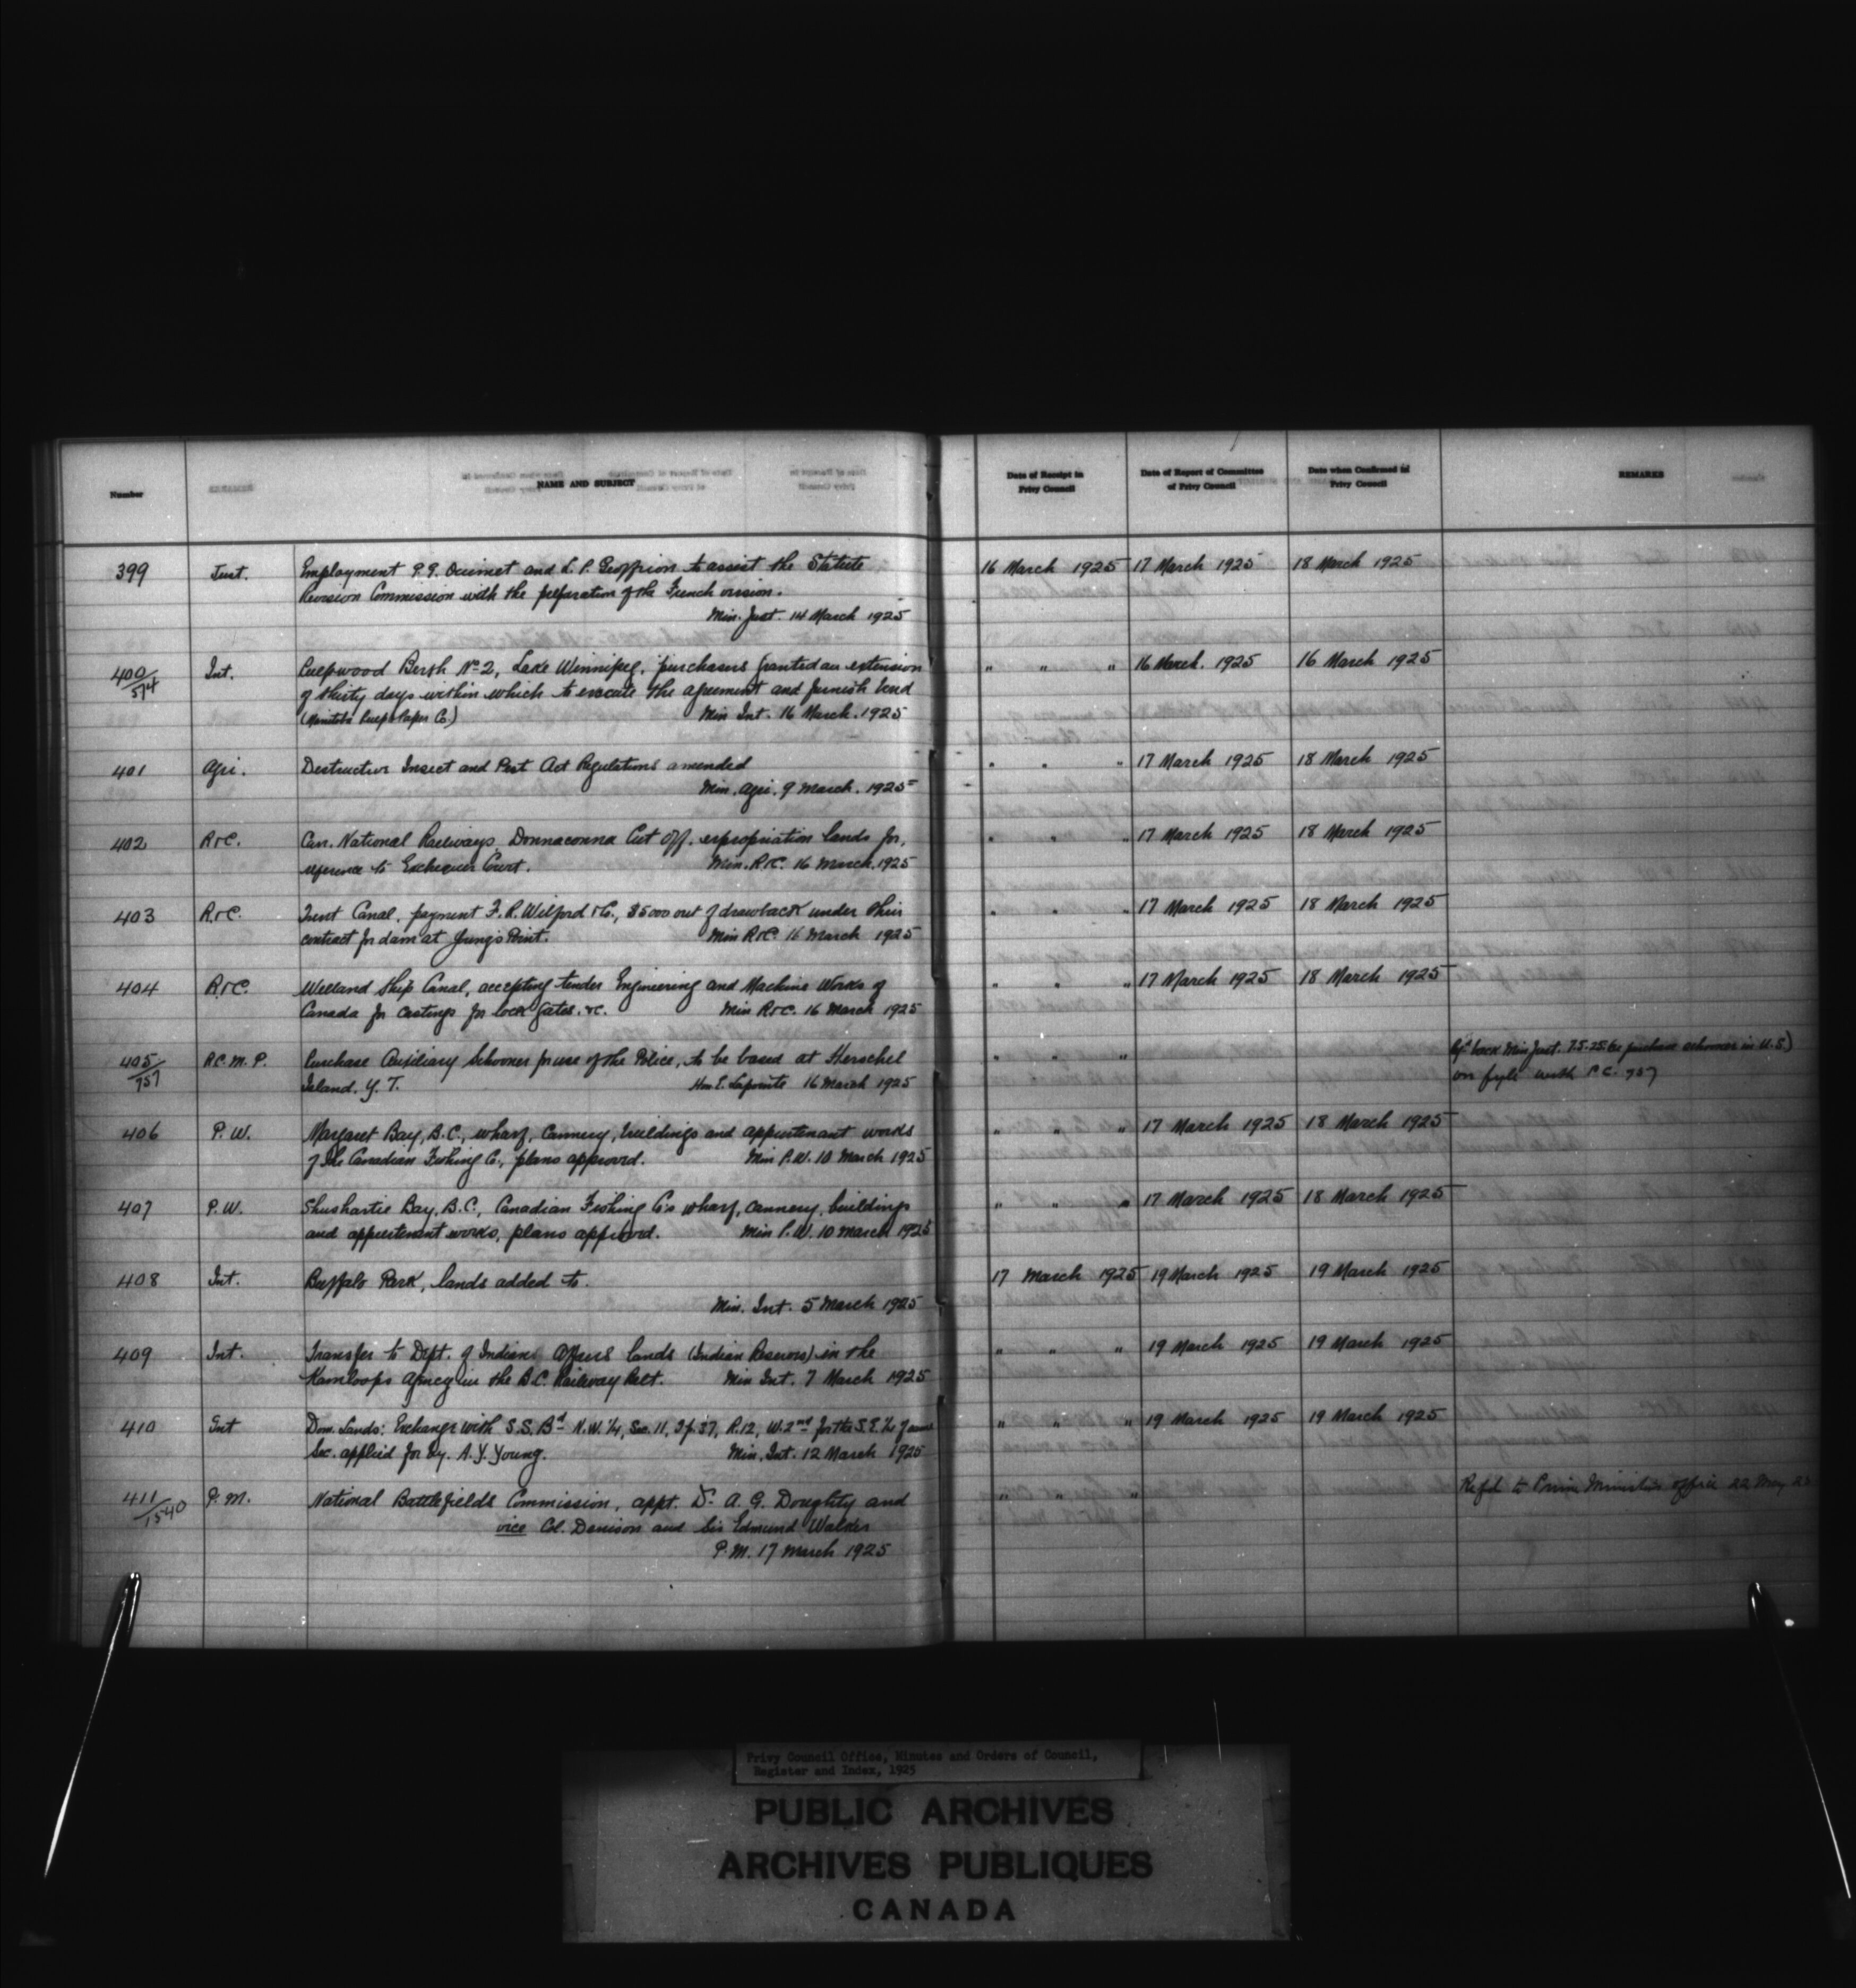 Number
NAME AND SUBJECT
Date of Receipt in
Privy Council
Date of Report of Committee
of Privy Council
Date when Confirmed in
Privy Council
REMARKS
399 Just. Employment P. G. Ouimet and L. P. Geoffrion to assist the Statute 16 March 1925 17 March 1925 18 March 1925
Revision Commission with the preparation of the French version.
Min. Just. 14 March 1925
400/574 Int. Pulpwood Berth No 2, Lake Winnipeg, purchasers granted an extension " " " 16 March. 1925 16 March 1925
of thirty days within which to execute the agreement and furnish bond
(Manitoba Pulp & Paper Co.) Min Int. 16 March. 1925
401 Agri. Destructive Insect and Pest Act Regulations amended " " " 17 March 1925 18 March 1925
Min. Agri. 9 March. 1925
402 R&C. Can. National Railways, Donnaconna Cut Off. expropriation lands for, " " " 17 March 1925 18 March 1925
reference to Exchequer Court. Min. R&C. 16 March. 1925
403 R&C. Trent Canal, payment F. R. Wilford & Co., $5000 out of drawback under their " " " 17 March 1925 18 March 1925
contract for dam at Young's Point. Min R&C. 16 March 1925
404 R&C. Welland Ship Canal, accepting tender Engineering and Machine Works of " " " 17 March 1925 18 March 1925
Canada for castings for lock gates. &c. Min R&C. 16 March 1925
405/757 R.C.M.P. Purchase Auxiliary Schooner for use of the Police, to be based at Herschel " " " back Min Just. 7.5.25 purchase schooner in U.S.)
Island. Y. T. Hon E. Lapointe 16 March 1925 on fyle with P.C. 757
406 P. W. Margaret Bay, B.C., wharf, cannery, buildings and appurtenant works " " " 17 March 1925 18 March 1925
of the Canadian Fishing Co., plans approved. Min P.W. 10 March 1925
407 P.W. Shushartie Bay, B.C., Canadian Fishing Co's wharf, cannery, buildings " " " 17 March 1925 18 March 1925
and appurtenant works, plans approved. Min P.W. 10 March 1925
408 Int. Buffalo Park, lands added to. 17 March 1925 19 March 1925 19 March 1925
Min. Int. 5 March 1925
409 Int. Transfer to Dept. of Indians Affairs lands (Indian Reserves) in the " " " 19 March 1925 19 March 1925
Kamloops Agency in the B.C. Railway Belt. Min Int. 7 March 1925
410 Int Dom. Lands: Exchange with S.S. Bd N.W. ¼, Sec. 11, Tp. 37, R.12, W. 2nd for the S.E. ¼ of same " " " 19 March 1925 19 March 1925
Sec. applied for by. A. Y. Young. Min. Int. 12 March 1925
411/1540 P.M. National Battlefields Commission, appt. Dr. A. G. Doughty and " " " Refd to Prime Ministers office 22 May 25
vice Col. Denison and Sir Edmund Walker
P.M. 17 March 1925
Privy Council Office, Minutes and Orders of Council,
Register and Index, 1925
PUBLIC ARCHIVES
ARCHIVES PUBLIQUES
CANADA